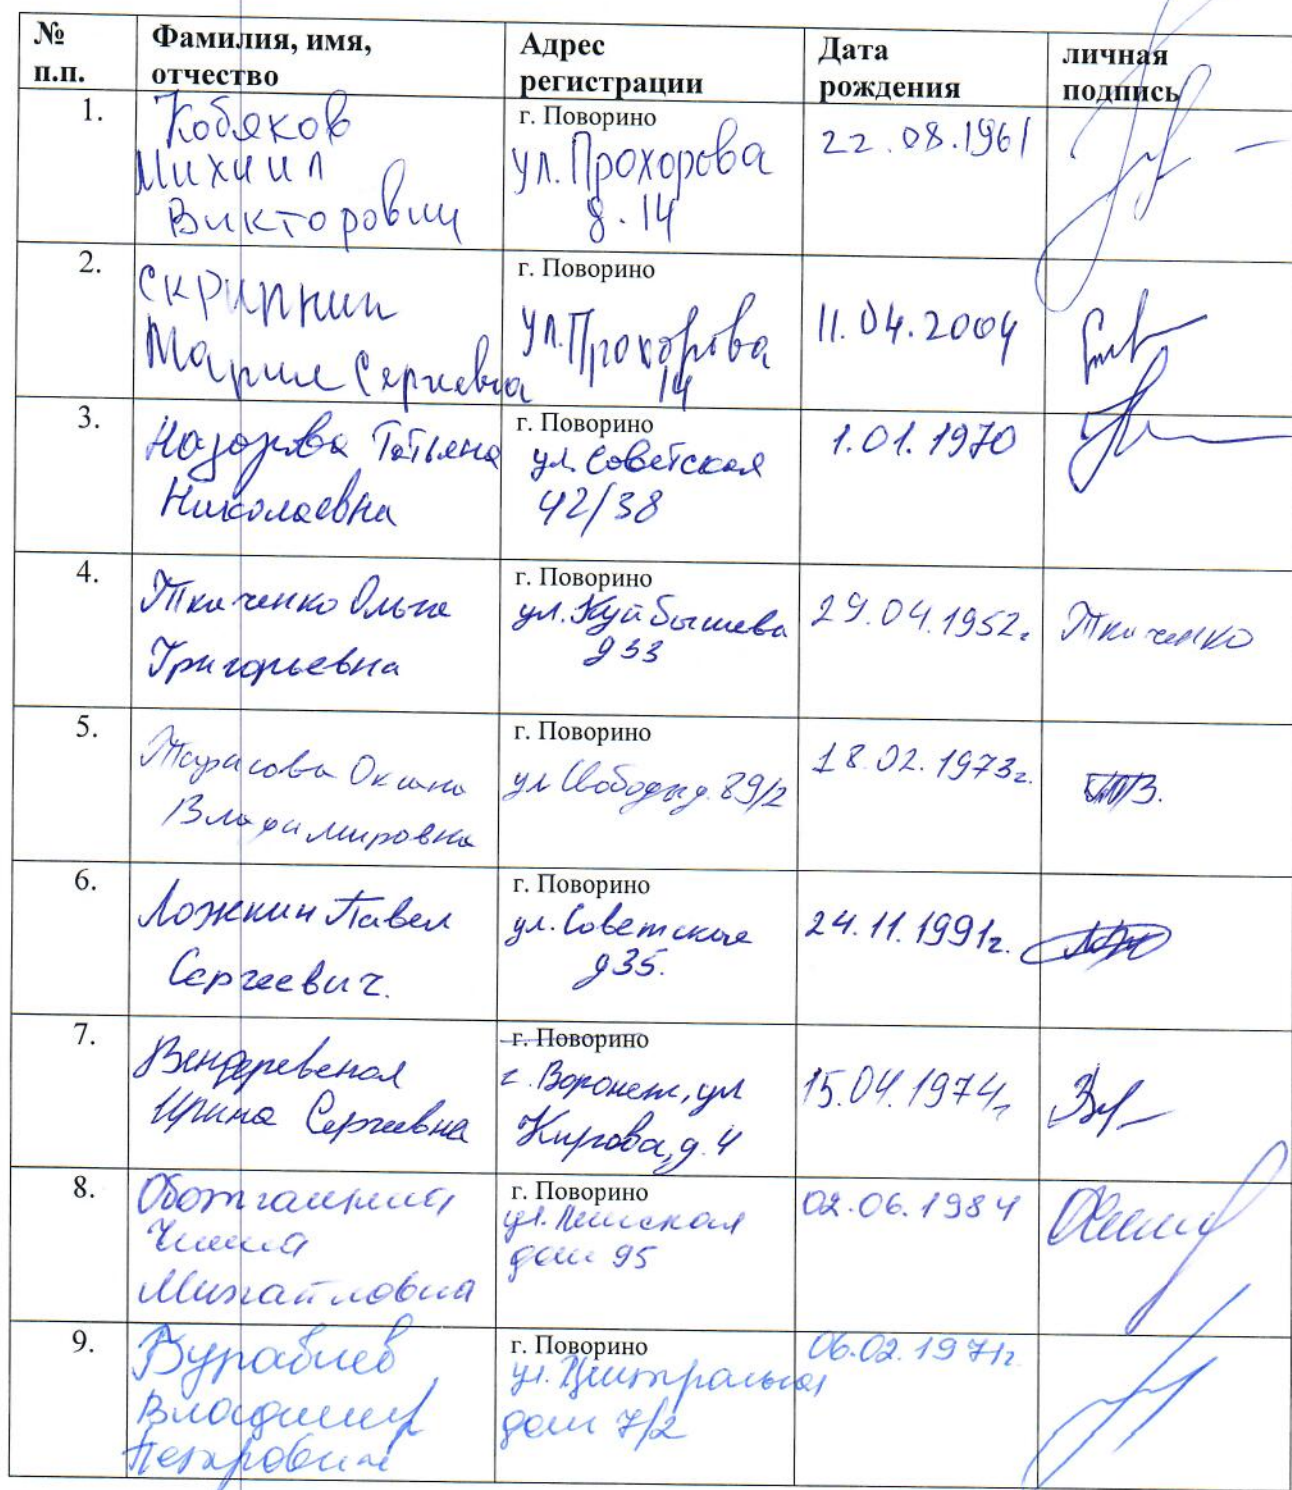 № п.п.
Фамилия, имя, отчество
Адрес регистрации
Дата рождения
личная подпись
1.
Кобяков
Михаил
Викторович
г. Поворино
ул. Прохорова
д. 14
22.08.1961
2.
Скрипник
Мария Сергеевна
г. Поворино
ул. Прохорова
14
11.04.2004
3.
Татьяна
Николаевна
г. Поворино
ул. Советская
42/38
1.01.1970
4.
Ткаченко Ольга
Григорьевна
г. Поворино
ул. Куйбышева
д 53
29.04.1952г.
Ткаченко
5.
Тарасова Оксана
Владимировна
г. Поворино
ул Свободы д. 89/2
18.02.1973г.
6.
Ложкин Павел
Сергеевич.
г. Поворино
ул. Советская
д 35.
24.11.1991г.
7.
Ирина Сергеевна
г. Поворино
г. Воронеж, ул
Кирова, д. 4
15.04.1974г
8.
Михайловна
г. Поворино
ул.
дом 95
02.06.1984
9.
Владимир
Петрович
г. Поворино
ул. Центральная
дом 7/2
06.02.1971г.